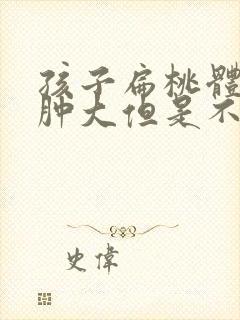 孩子扁桃體
肿大但是不
史偉